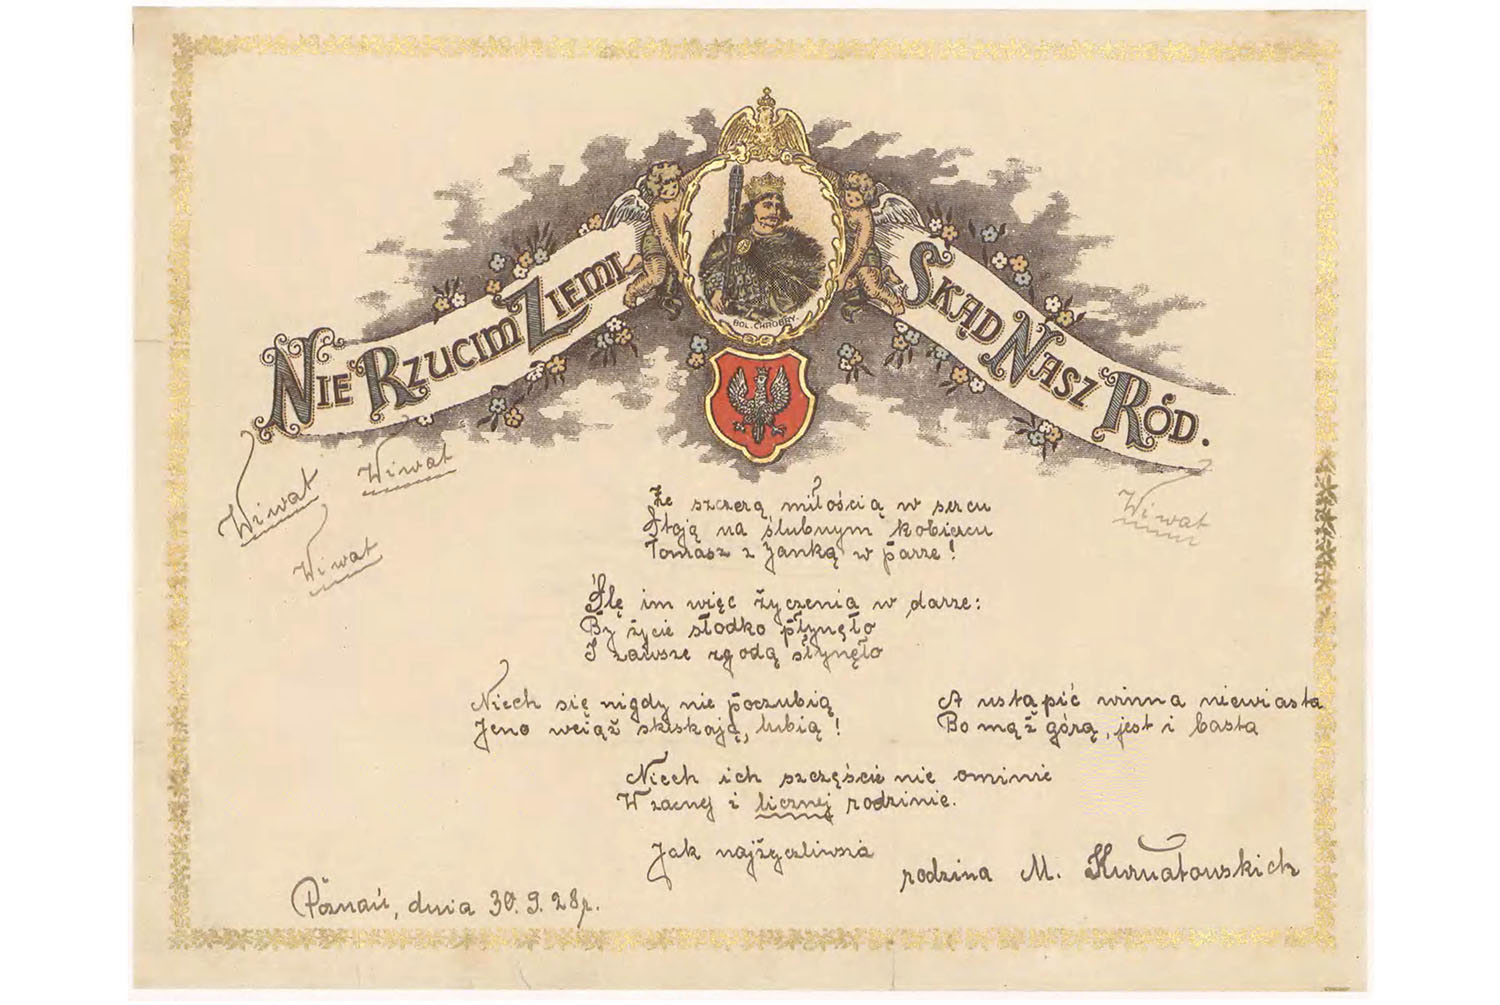 NIE RZUCIM ZIEMI
SKĄD NASZ RÓD.
BOL. CHROBRY.
Wiwat
Wiwat
Wiwat
Wiwat
Ze szczerą miłością w sercu
Stoją na ślubnym kobiercu
Tomasz z Janką w parze!
Ślę im więc życzenia w darze:
By życie słodko płynęło
I zawsze zgodą słynęło
Niech się nigdy nie poczubią
Jeno wciąż skiskają, lubią!
A ustąpić winna niewiasta
Bo mąż górą, jest i basta
Niech ich szczęście nie ominie
W zacnej i licznej rodzinie.
Jak najżyczliwsza
rodzina M. Kurnatowskich
Poznań, dnia 30.9.28r.